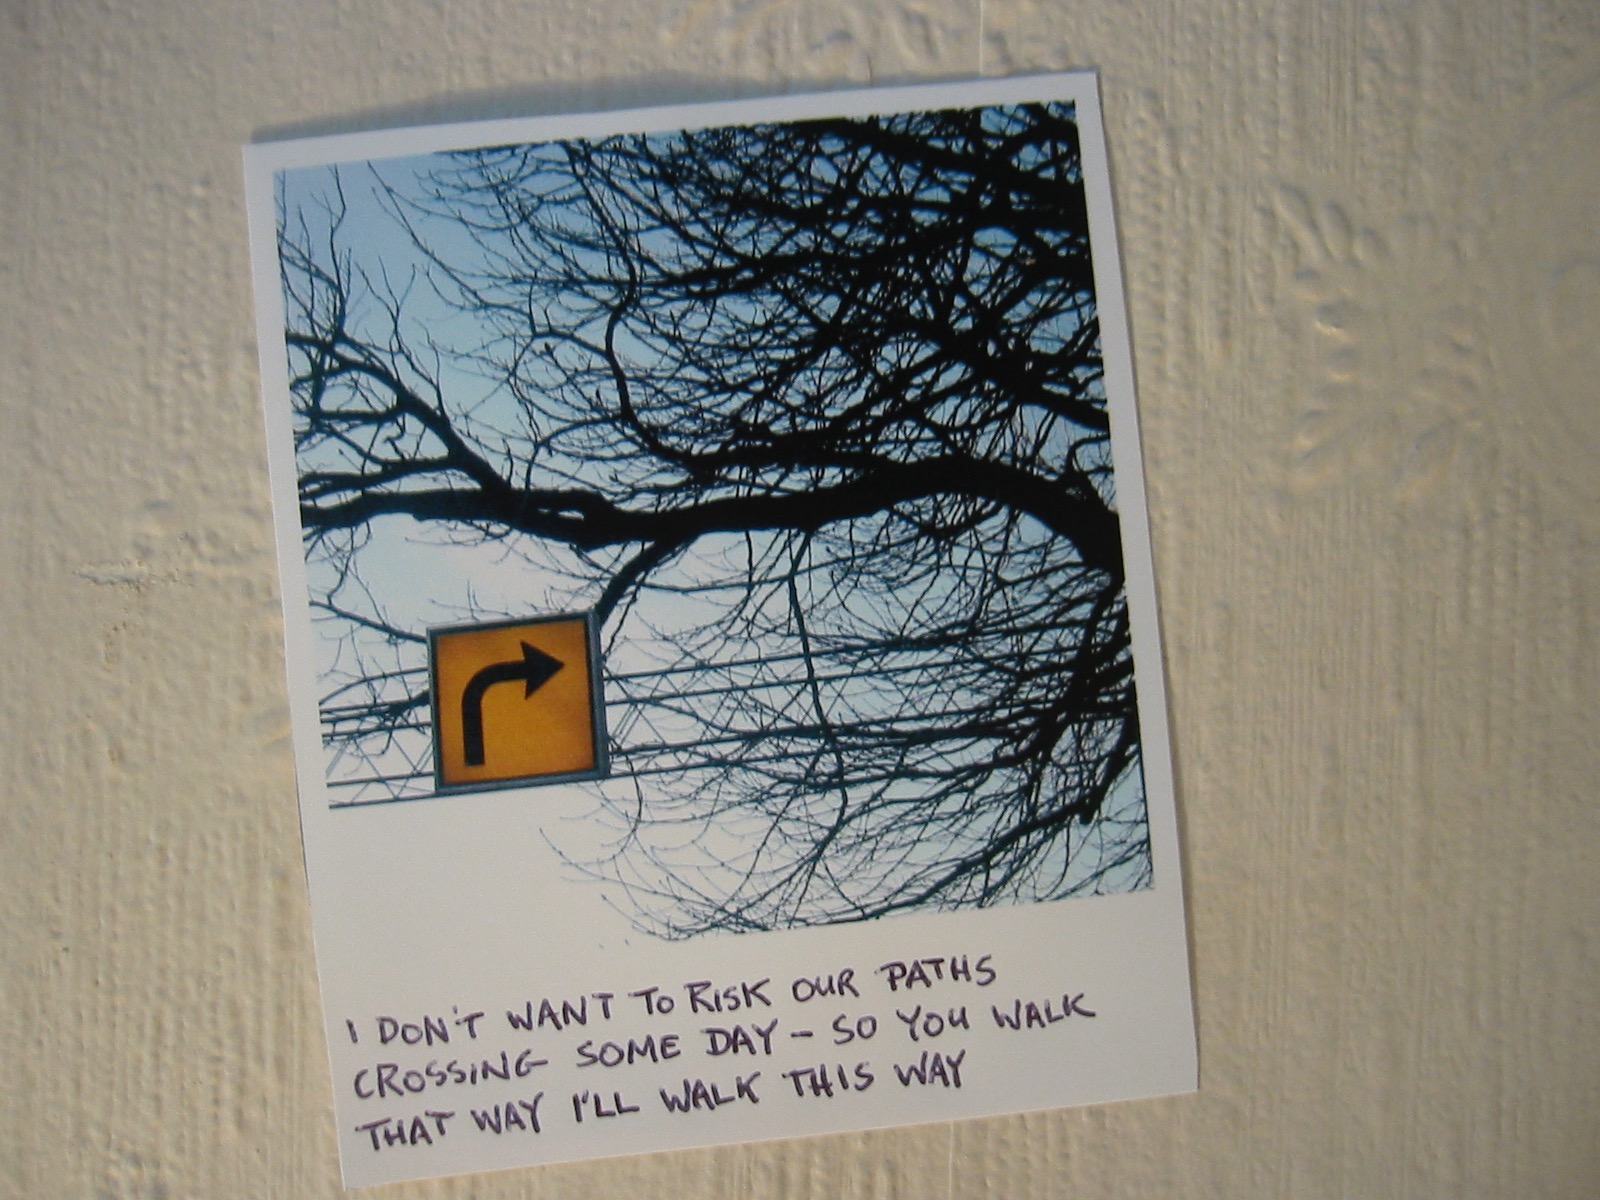 I DON'T WANT TO RISK OUR PATHS
CROSSING SOME DAY – SO YOU WALK
THAT WAY I'LL WALK THIS WAY